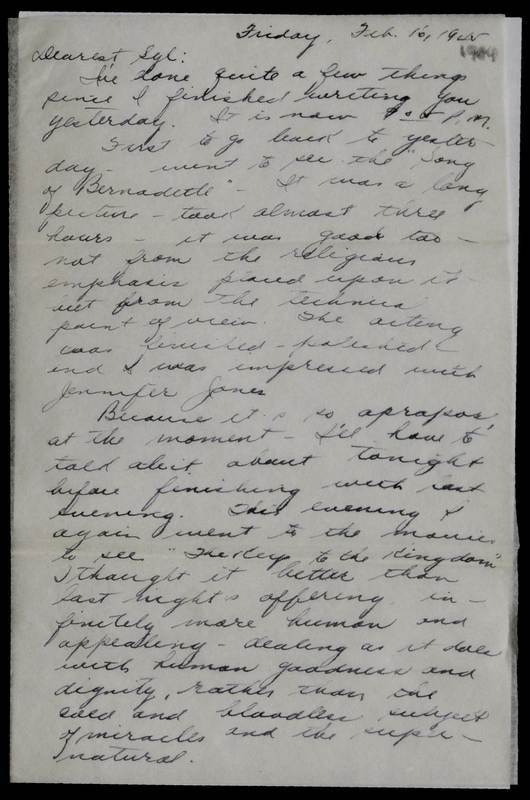 Friday, Feb. 16, 1945
1944
Dearest Syl:
I've done quite a few things
since I finished writing you
yesterday. It is now P.M.
First to go back to yester-
day - went to see the "Song
of Bernadette" - It was a long
picture - took almost three
hours - it was good too -
not from the religious
emphasis placed upon it
but from the technical
point of view. The acting
was finished - polished -
and I was impressed with
Jennifer Jones
Because it's so apropos'
at the moment - I'll have to
talk a bit about tonight
before finishing with last
evening. This evening I
again went to the movies
to see "The Keys to the Kingdom"
I thought it better than
last night's offering in-
finitely more human and
appealing - dealing as it does
with human goodness and
dignity, rather than the
cold and bloodless subject
of miracles and the super-
natural.